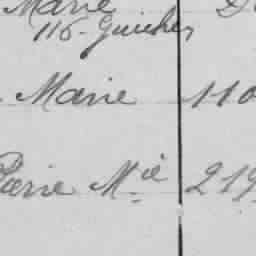 Marie
116 - Guicher
Marie 110
Marie Mie 219